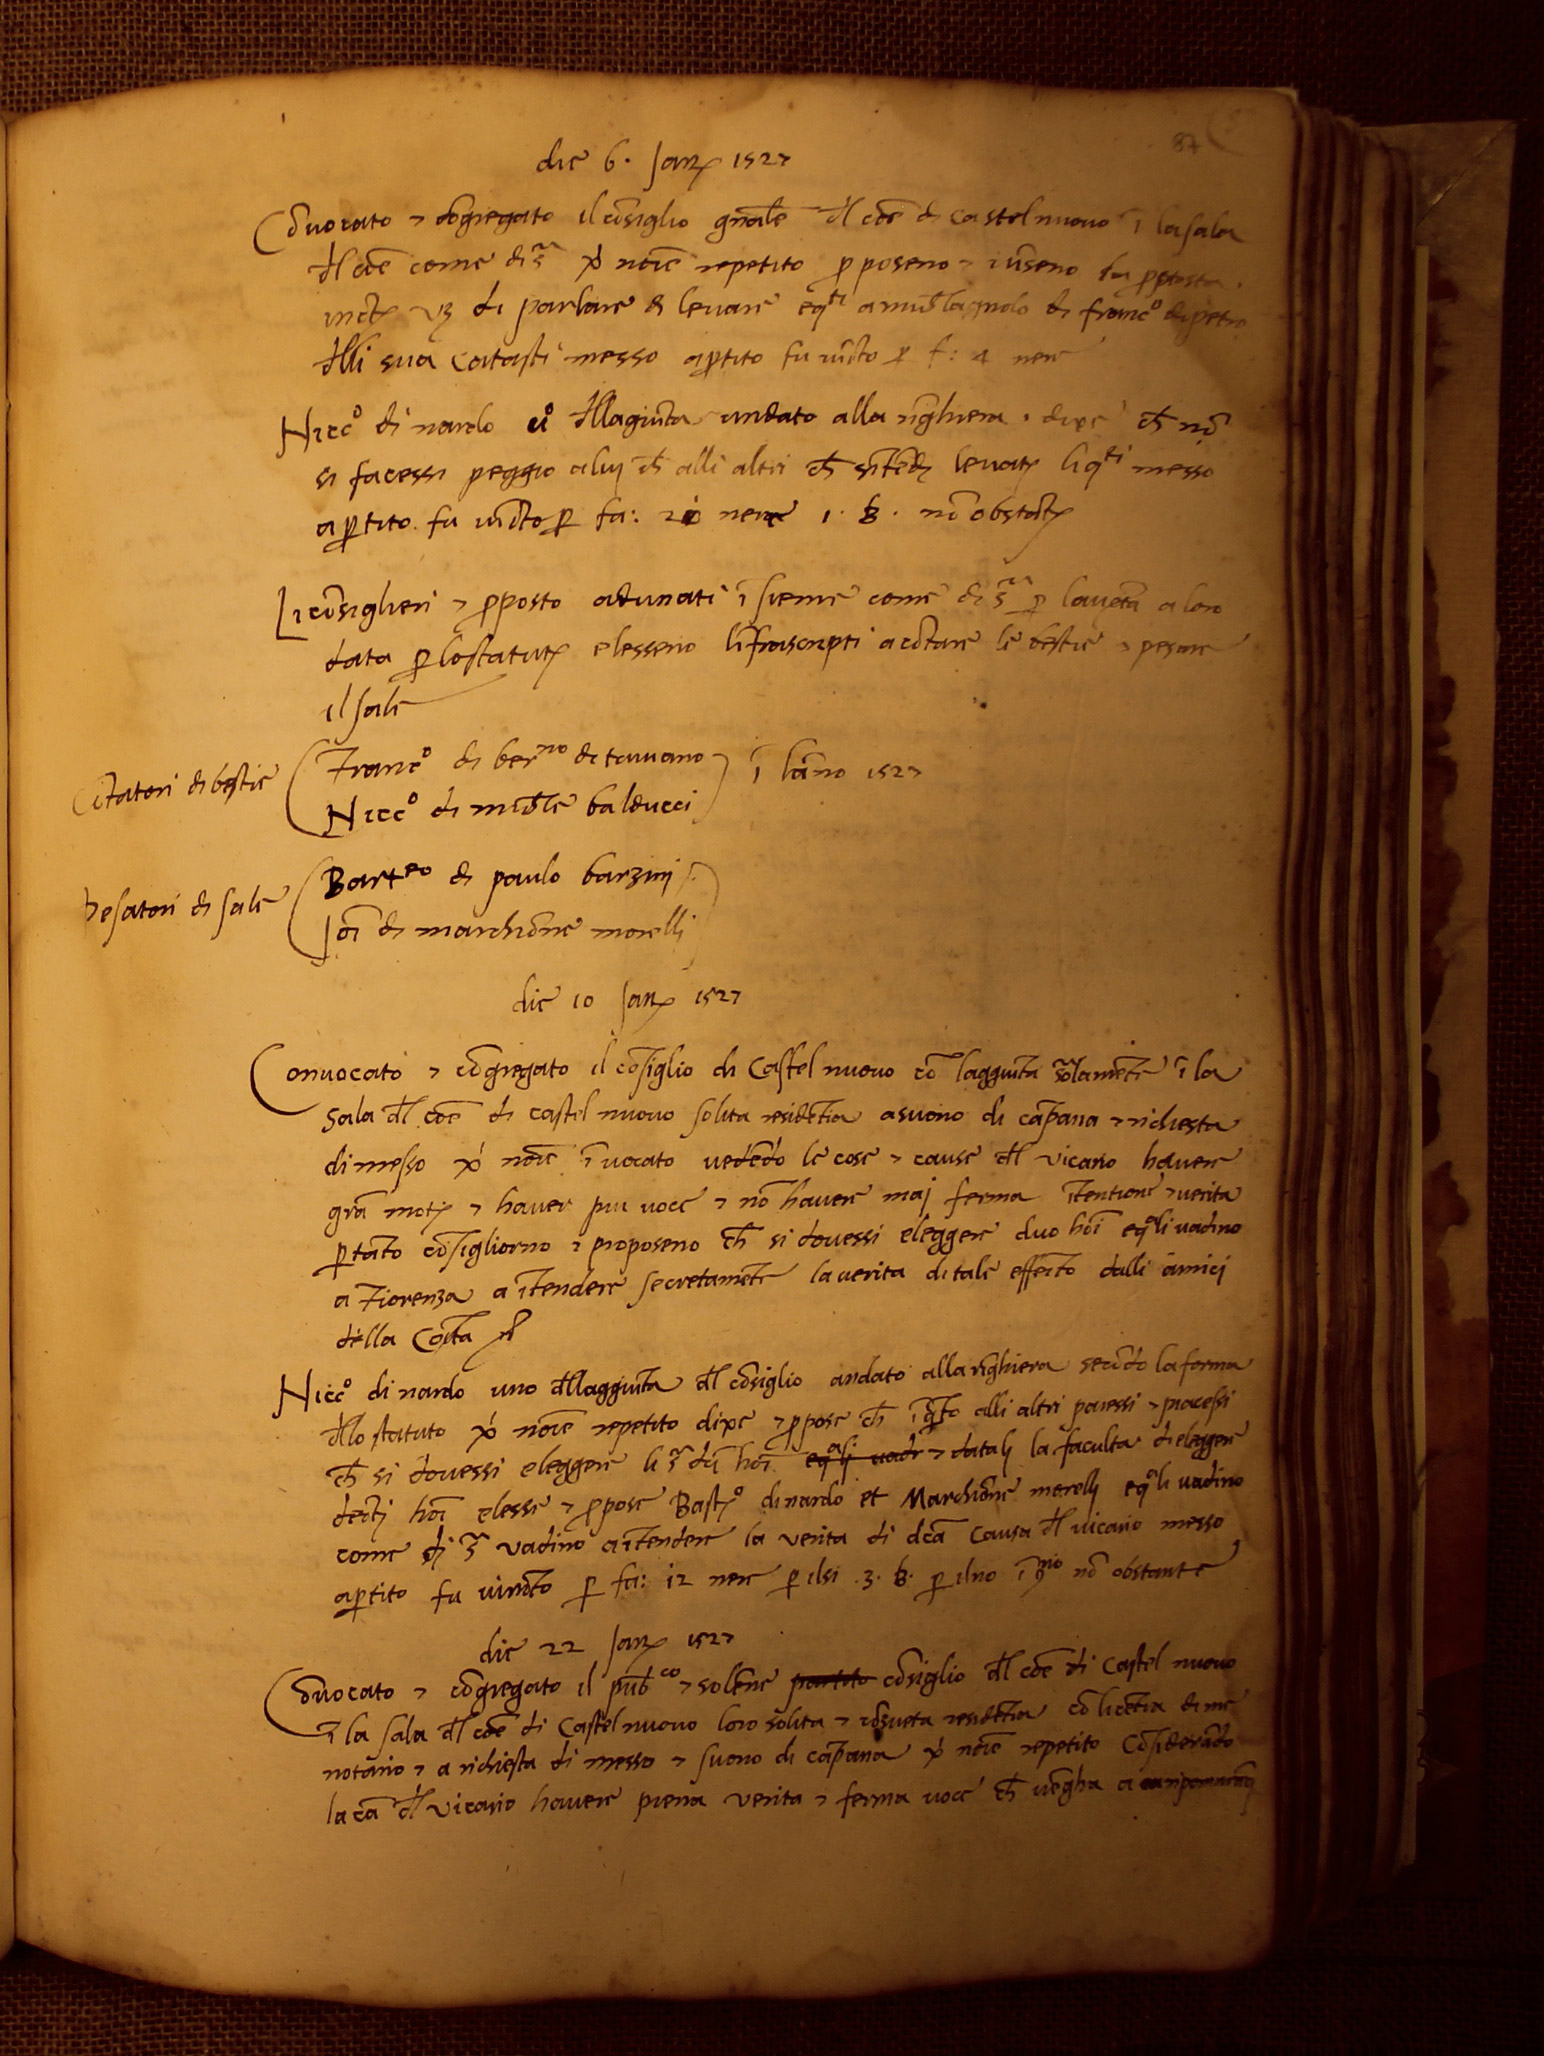 87
die 6. Janr 1527
Cōvocato & cōgregato il cōsiglio gnāle dl cōe di castel nuovo ī la sala
dl cōe come di sª xo noīe repetito pposeno & la pposta
di parlare & levare eqti di francº di petro
dlli sua catasti messo aptito fu vīcto p f: 4 nere
Niccº di nardo uº dllagiūta andato alla rīghiera dixe ch nō
si facessi peggio a luj ch alli altri ch levati li qti messo
aptito fu vīcto p fa: nere 1. b. nō obstāti
Li cōsiglieri & pposto adunati īsieme come di sª p lauctā a loro
data p lo statuto elesseno līfrascripti a cōtare le bestie & pesare
il sale
Cōtatori di bestie
Francº di berno di tavano
Niccº di michle balducci
ī lāno 1527
Pesatori di sale
Barteo di paulo barzinj
Joī di marchiōne morelli
die 10 Janr 1527
Convocato & cōgregato il cōsiglio di Castel nuovo cō laggiūta solamēte ī la
sala dl cōe di castel nuovo solita residētia a suono di cāpana & richiesta
di messo xo noīe īvocato vedēdo le cose & cause dl vicario havere
grā moti & haver piu voce & nō havere maj ferma ītentione & verita
ptāto cōsigliorno & proposeno ch si dovessi eleggere duo hoī eqªli vadino
a Fiorenza a ītendere secretamēte la verita di tale effecto dalli amici
della Cōta
Niccº di nardo uno dllaggiūta dl cōsiglio andato alla rīghiera secōdo la forma
dllo statuto xo noīe repetito dixe & ppose ch īqªto alli altri paressi & piacessi
ch si dovessi eleggere li sª dī hoī eqªlj vadi & datalj la faculta di eleggere
dectj hoī elesse & ppose Bastº di nardo et Marchiōne morellj eqªli vadino
come di sª vadino a ītendere la verita di dcā causa dl vicario messo
aptito fu vincto p fa: 12 nere p il si .3. b. p il no nō obstante
die 22 Janr 1527
Cōvocato & cōgregato il pubco & solēne partito cōsiglio dl cōe di Castel nuovo
ī la sala dl cōe di Castel nuovo loro solita & cōsueta residētia cō licētia di me
notario & a richiesta di messo & suono di cāpana xo noīe repetito Cōsiderādo
la cā dl vicario havere piena verita & ferma voce ch vēgha a